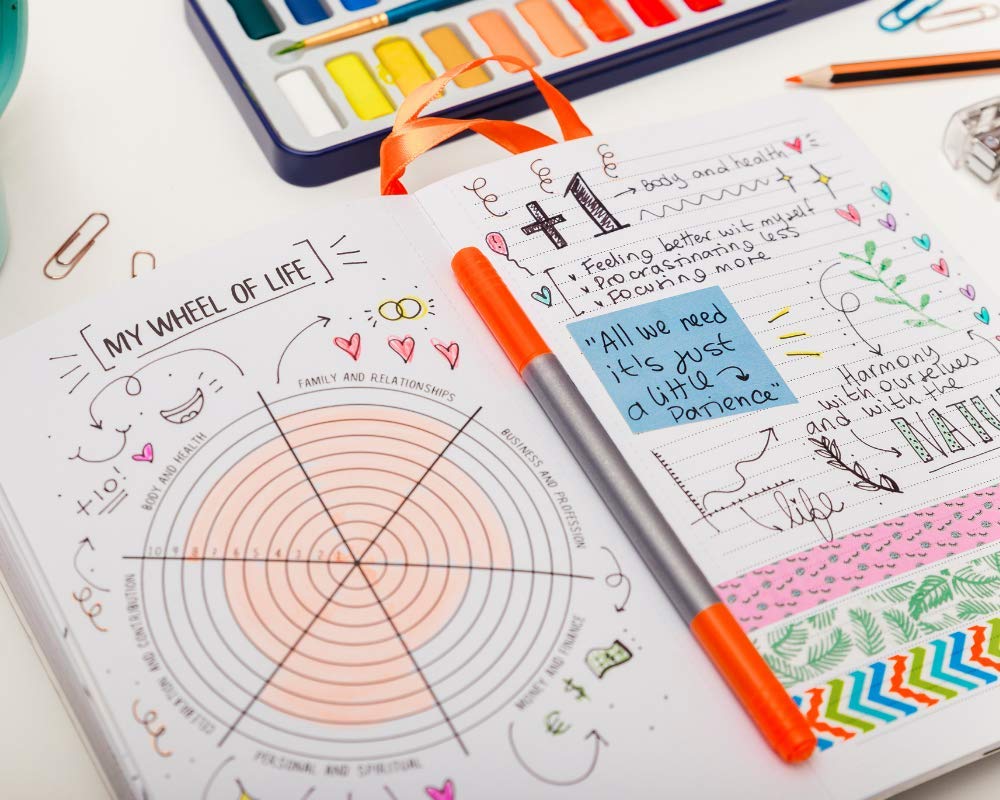 MY WHEEL OF LIFE
FAMILY AND RELATIONSHIPS
BUSINESS AND PROFESSION
MONEY AND FINANCE
PERSONAL AND SPIRITUAL
CELEBRATION AND CONTRIBUTION
BODY AND HEALTH
+10!
10 9 8 7 6 5 4 3 2 1
+1 → Body and health
Feeling better wit myself
Procrastinating less
Focusing more
"All we need
it's just
a little
Parience"
Harmony
with ourselves
and with the
life